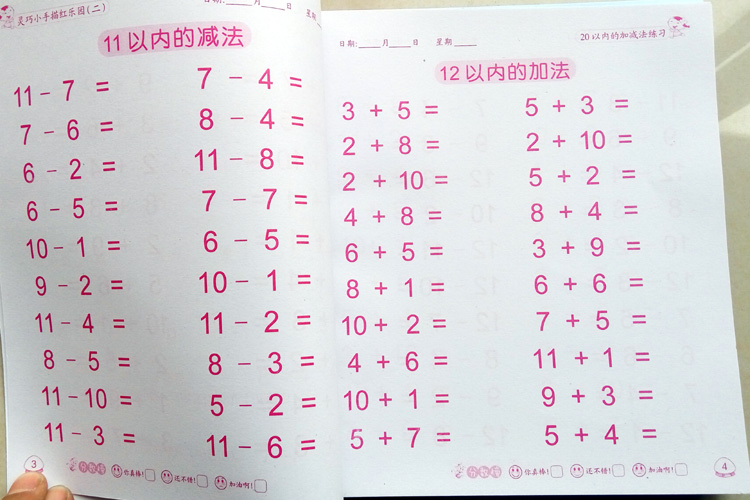 灵巧小手描红乐园(二)
日期:____月____日 星期
11以内的减法
11 - 7 =
7 - 6 =
6 - 2 =
6 - 5 =
10 - 1 =
9 - 2 =
11 - 4 =
8 - 5 =
11 - 10 =
11 - 3 =
7 - 4 =
8 - 4 =
11 - 8 =
7 - 7 =
6 - 5 =
10 - 1 =
11 - 2 =
8 - 3 =
5 - 2 =
11 - 6 =
3
你真棒! 还不错! 加油啊!
日期:____月____日 星期____
20以内的加减法练习
12以内的加法
3 + 5 =
2 + 8 =
2 + 10 =
4 + 8 =
6 + 5 =
8 + 1 =
10 + 2 =
4 + 6 =
10 + 1 =
5 + 7 =
5 + 3 =
2 + 10 =
5 + 2 =
8 + 4 =
3 + 9 =
6 + 6 =
7 + 5 =
11 + 1 =
9 + 3 =
5 + 4 =
你真棒! 还不错! 加油啊!
4